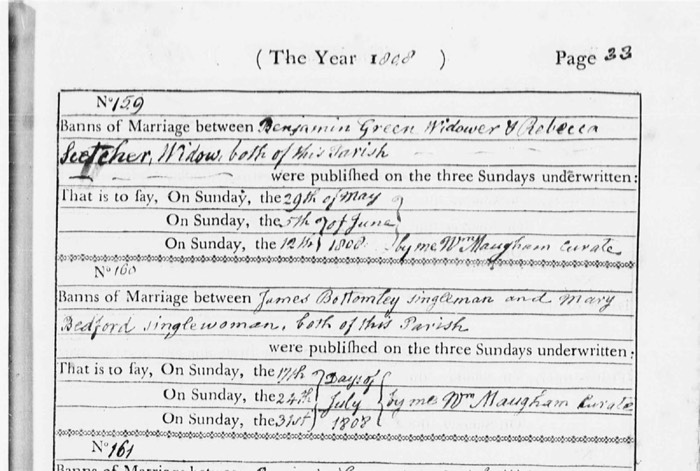 ( The Year 1808 ) Page 33
No 159
Banns of Marriage between Benjamin Green Widower & Rebecca
Widow, both of this Parish
were publiſhed on the three Sundays underwritten:
That is to ſay, On Sunday, the 29th of May
On Sunday, the 5th of June
On Sunday, the 12th 1808. by me Wm Maugham Curate
No 160
Banns of Marriage between James Bottomley singleman and Mary
Bedford singlewoman, both of this Parish
were publiſhed on the three Sundays underwritten:
That is to ſay, On Sunday, the 17th Days of
On Sunday, the 24th July by me Wm Maugham Curate
On Sunday, the 31st 1808
No 161